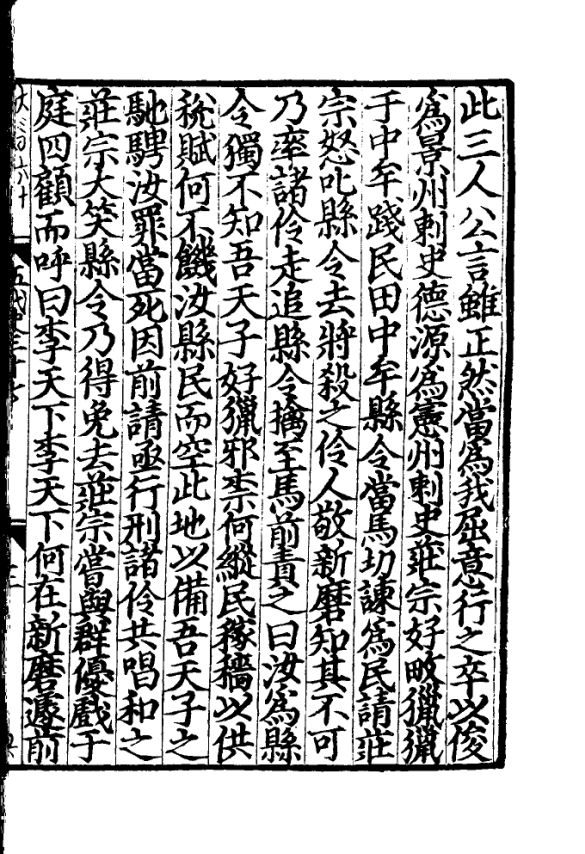 此三人公言雖正然當爲我屈意行之卒以俊
爲景州刺史德源爲憲州刺史莊宗好畋獵獵
于中牟踐民田中牟縣令當馬切諫爲民請莊
宗怒叱縣令去將殺之伶人敬新磨知其不可
乃率諸伶走追縣令擒至馬前責之曰汝爲縣
令獨不知吾天子好獵邪柰何縱民稼穡以供
稅賦何不饑汝縣民而空此地以備吾天子之
馳騁汝罪當死因前請亟行刑諸伶共唱和之
莊宗大笑縣令乃得免去莊宗嘗與群優戲于
庭四顧而呼曰李天下李天下何在新磨遽前
五代史三十七